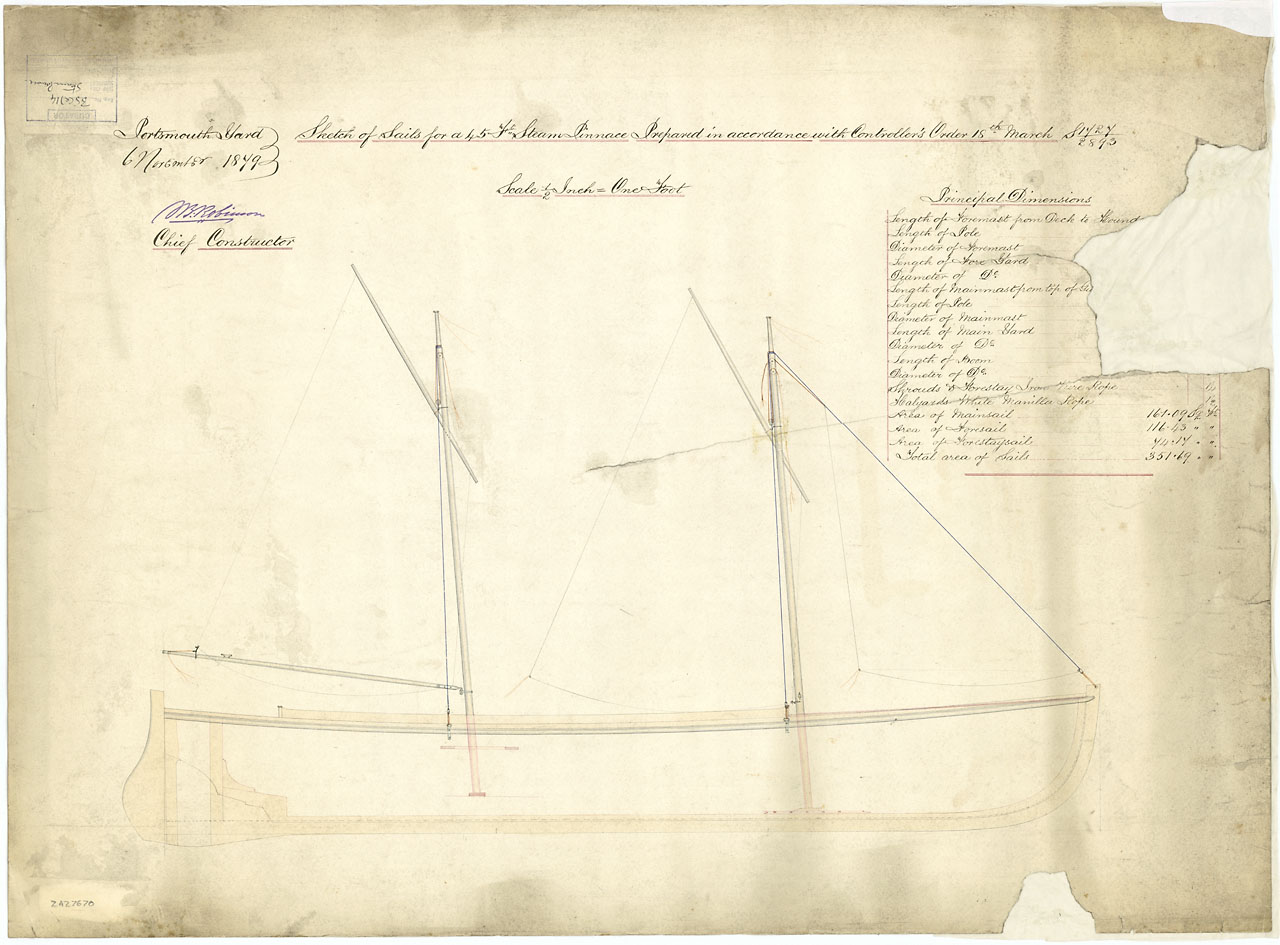 Portsmouth Yard
6 November 1879
W. B. Robinson
Chief Constructor
Sketch of Sails for a 45 Ft Steam Pinnace Prepared in accordance with Controller's Order 18th March S 1727/2893
Scale ½ Inch = One Foot
Principal Dimensions
Length of Foremast from Deck to Hound
Length of Pole
Diameter of Foremast
Length of Fore Yard
Diameter of Do
Length of Mainmast from top of
Length of Pole
Diameter of Mainmast
Length of Main Yard
Diameter of Do
Length of Boom
Diameter of Do
Shrouds & Forestay Iron Wire Rope
Halyards White Manilla Rope
Area of Mainsail 161.09 Sq Ft
Area of Foresail 116.43 " "
Area of Forestaysail 74.17 " "
Total area of Sails 351.69 " "
ZAZ7670